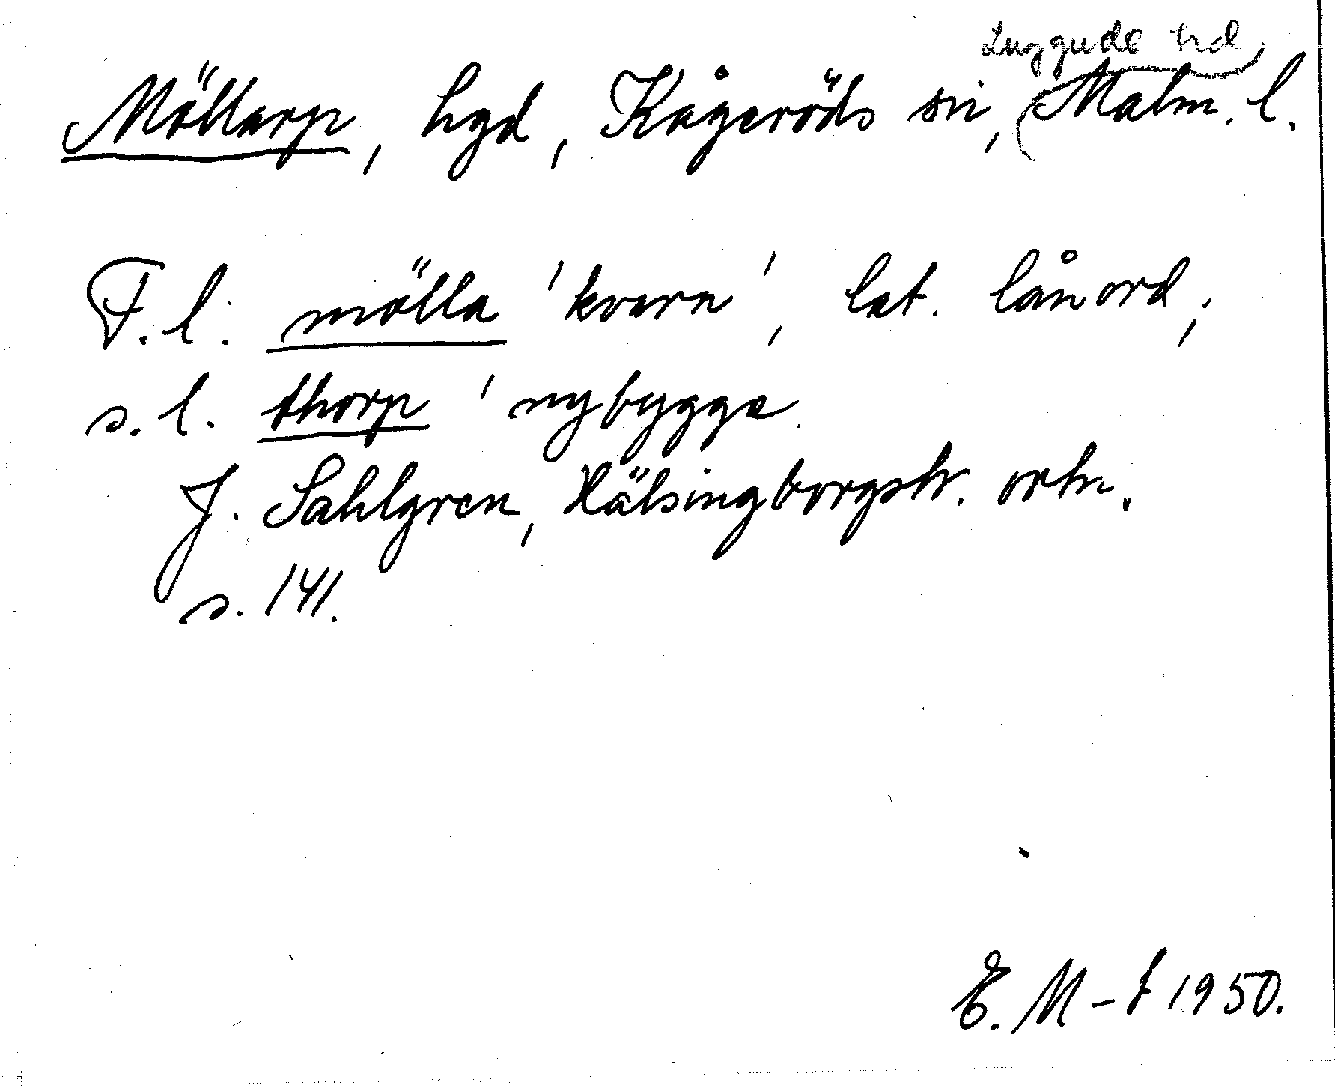 Luggude hd
Möllarp, hgd, Kågeröds sn, Malm. l.
F.l. mölla 'kvarn', lat. lånord;
s.l. thorp 'nybygge
J. Sahlgren, Hälsingborgstr. ortn.
s. 141.
E. M-f 1950.